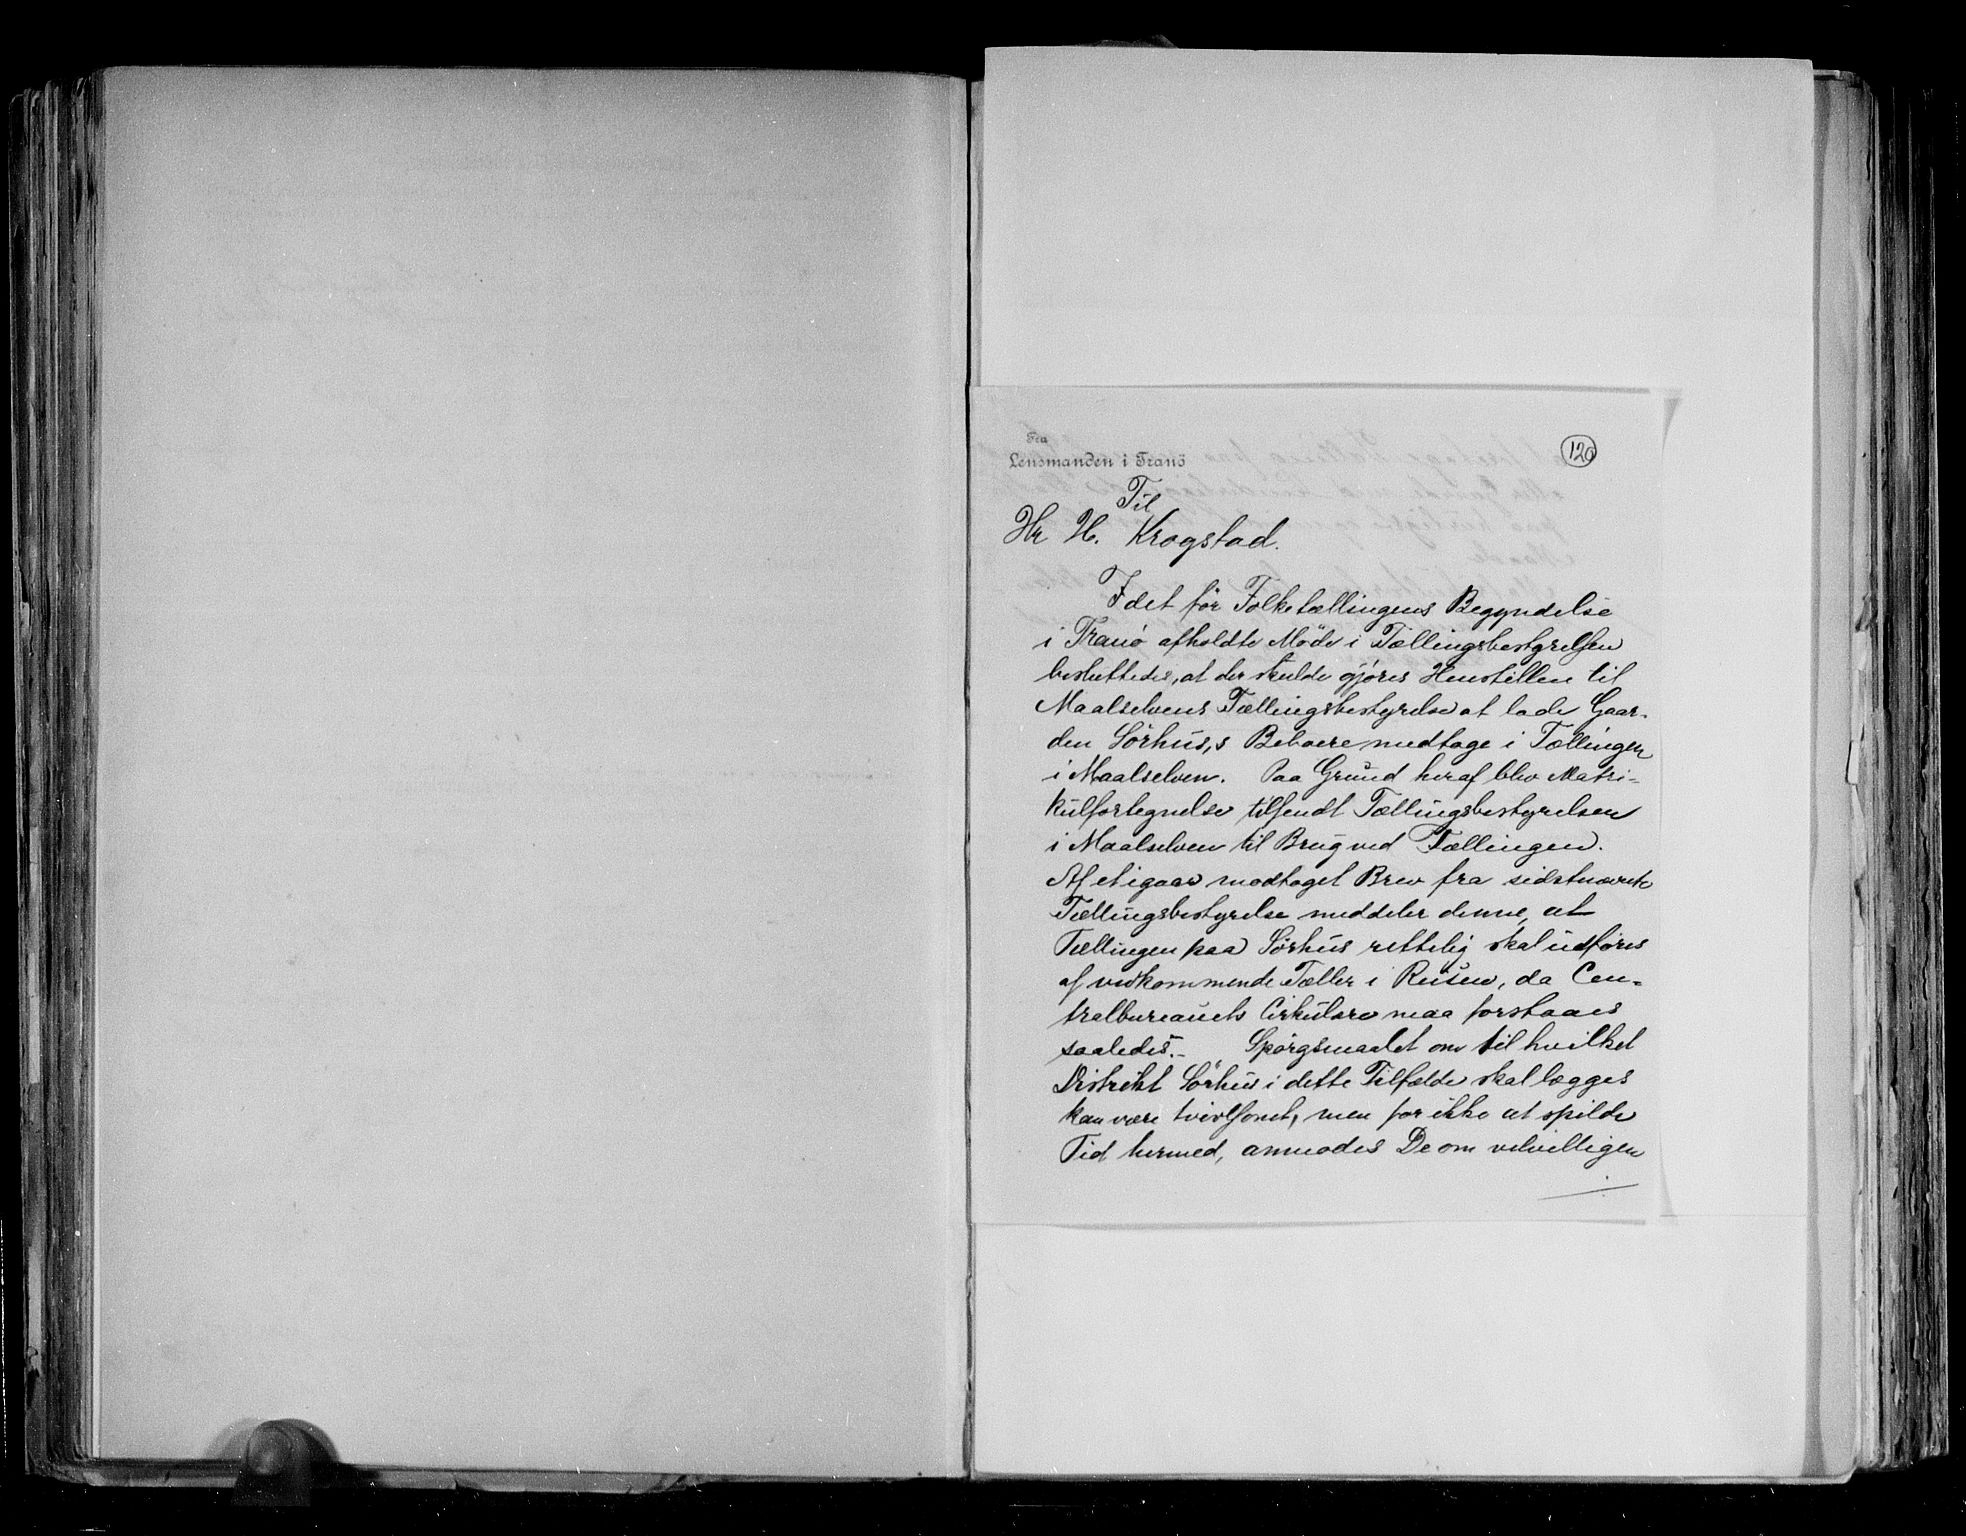 Fra
Lensmanden i Tranö
120
Til
Hr H. Krogstad.
I det för Folketællingens Begyndelse
i Tranö afholdte Möde i Tællingsbestyrelsen
besluttedes, at der skulde gjöres Henstillen til
Maalselvens Tællingsbestyrelse at lade Gaar-
den Sörhus,s Beboere medtage i Tællingen
i Maalselven. Paa Grund heraf blev Matri-
kulfortegnelse tilsendt Tællingsbestyrelsen
i Maalselven til Brug ved Tællingen.
Af et igaar modtaget Brev fra sidstnævnte
Tællingsbestyrelse meddeler denne, at
Tællingen paa Sörhus rettelig skal udföres
af vedkommende Tæller i Reisen, da Cen-
tralbureauets Cirkulære maa forstaaes
saaledes.- Spörgsmaalet om til hvilket
Distrikt Sörhus i dette Tilfælde skal lægges
kan være tvivlsomt, men for ikke at spilde
Tid hermed, anmodes De om velvilligen